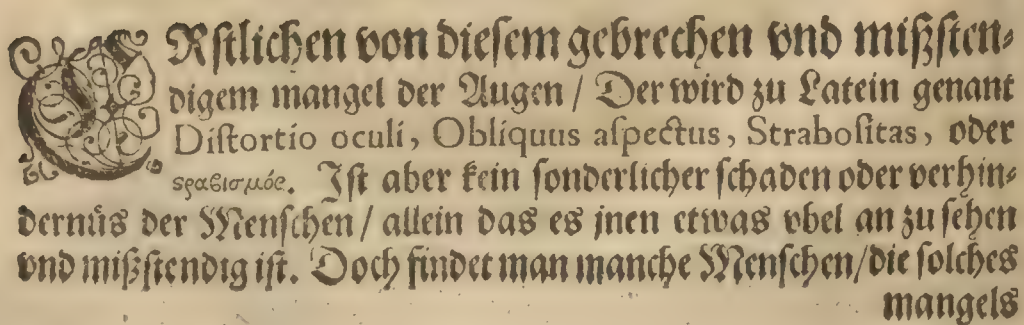 ERſtlichen von dieſem gebrechen vnd mißſten⸗
digem mangel der Augen / Der wird zu Latein genant
Diſtortio oculi, Obliquus aſpectus, Straboſitas, oder
ςραβισμός. Iſt aber kein ſonderlicher ſchaden oder verhin⸗
dernüs der Menſchen / allein das es jnen etwas vbel an zu ſehen
vnd mißſtendig iſt. Doch findet man manche Menſchen / die ſolches
mangels